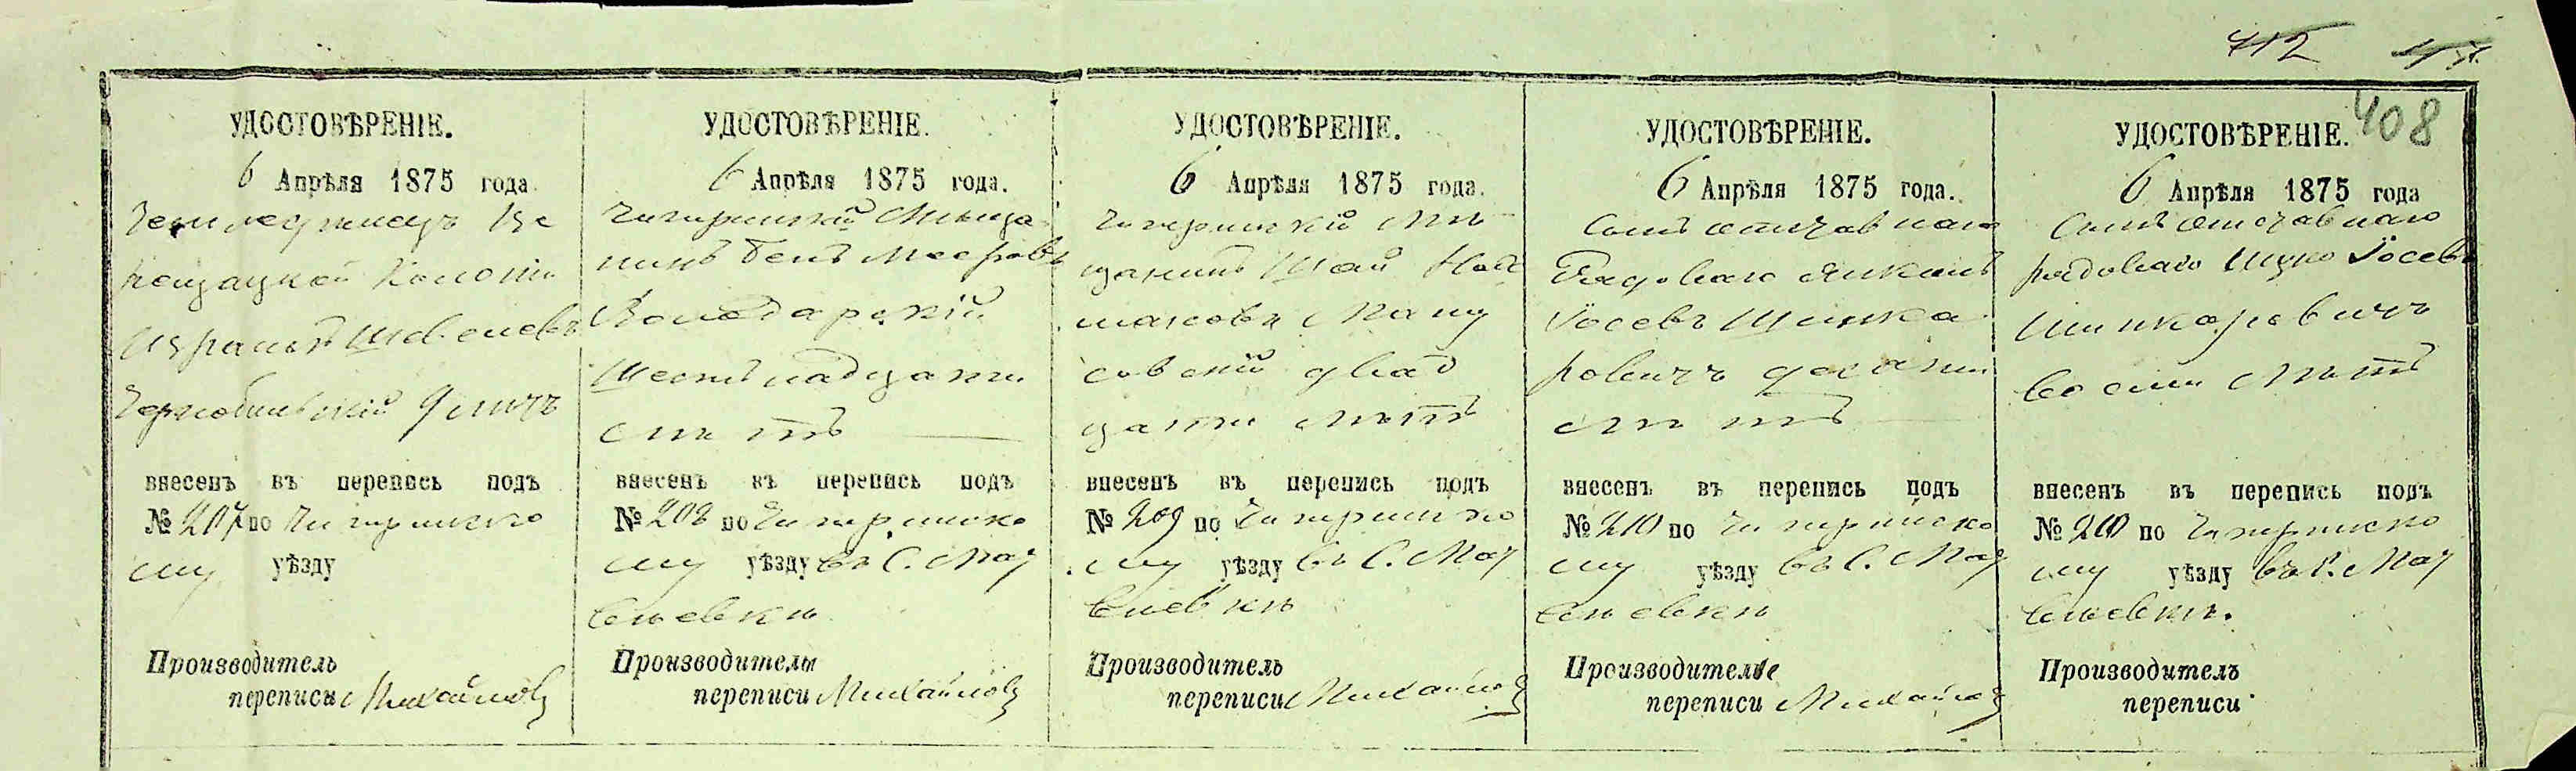 412
408
УДОСТОВѢРЕНІЕ.
6 Апрѣля 1875 года.
Израиль Шевелевъ
Чернобыльскій
внесенъ въ перепись подъ
№ 207 по Чигиринско
му уѣзду
Производитель
переписи Михайловъ
УДОСТОВѢРЕНІЕ.
6 Апрѣля 1875 года.
Чигиринскій Мѣща
нинъ Бенъ Мееровъ
Володарскій
Шестнадцати
лѣтъ
внесенъ въ перепись подъ
№ 208 по Чигиринско
му уѣзду въ С.
Производитель
переписи Михайловъ
УДОСТОВѢРЕНІЕ.
6 Апрѣля 1875 года.
Чигиринскій Мѣ
щанинъ
двад
цати лѣтъ
внесенъ въ перепись подъ
№ 209 по Чигиринско
му уѣзду въ С.
Производитель
переписи Михайловъ
УДОСТОВѢРЕНІЕ.
6 Апрѣля 1875 года.
Сынъ отставнаго
Рядоваго Янкель
Іосевъ Шинка
ровичъ десяти
лѣтъ
внесенъ въ перепись подъ
№ 210 по Чигиринско
му уѣзду въ С.
Производитель
переписи Михайловъ
УДОСТОВѢРЕНІЕ.
6 Апрѣля 1875 года
Сынъ отставнаго
рядоваго Іосевъ
Шинкаровичъ
восьми лѣтъ
внесенъ въ перепись подъ
№ 210 по Чигиринско
му уѣзду въ С.
Производитель
переписи